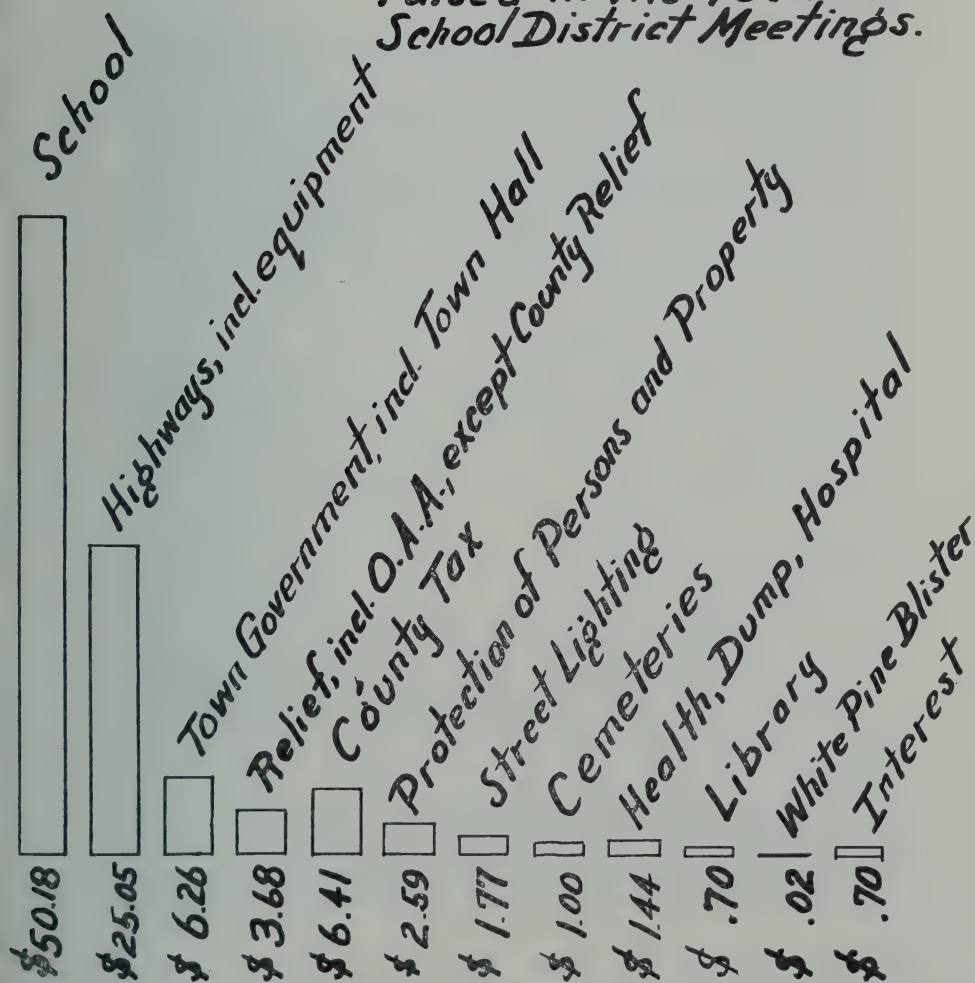 School District Meetings.
School
Highways, incl. equipment
Town Government, incl. Town Hall
Relief, incl. O.A.A., except County Relief
County Tax
Protection of Persons and Property
Street Lighting
Cemeteries
Health, Dump, Hospital
Library
White Pine Blister
Interest
$50.18
$25.05
$ 6.26
$ 3.68
$ 6.41
$ 2.59
$ 1.77
$ 1.00
$ 1.44
$ .70
$ .02
$ .70